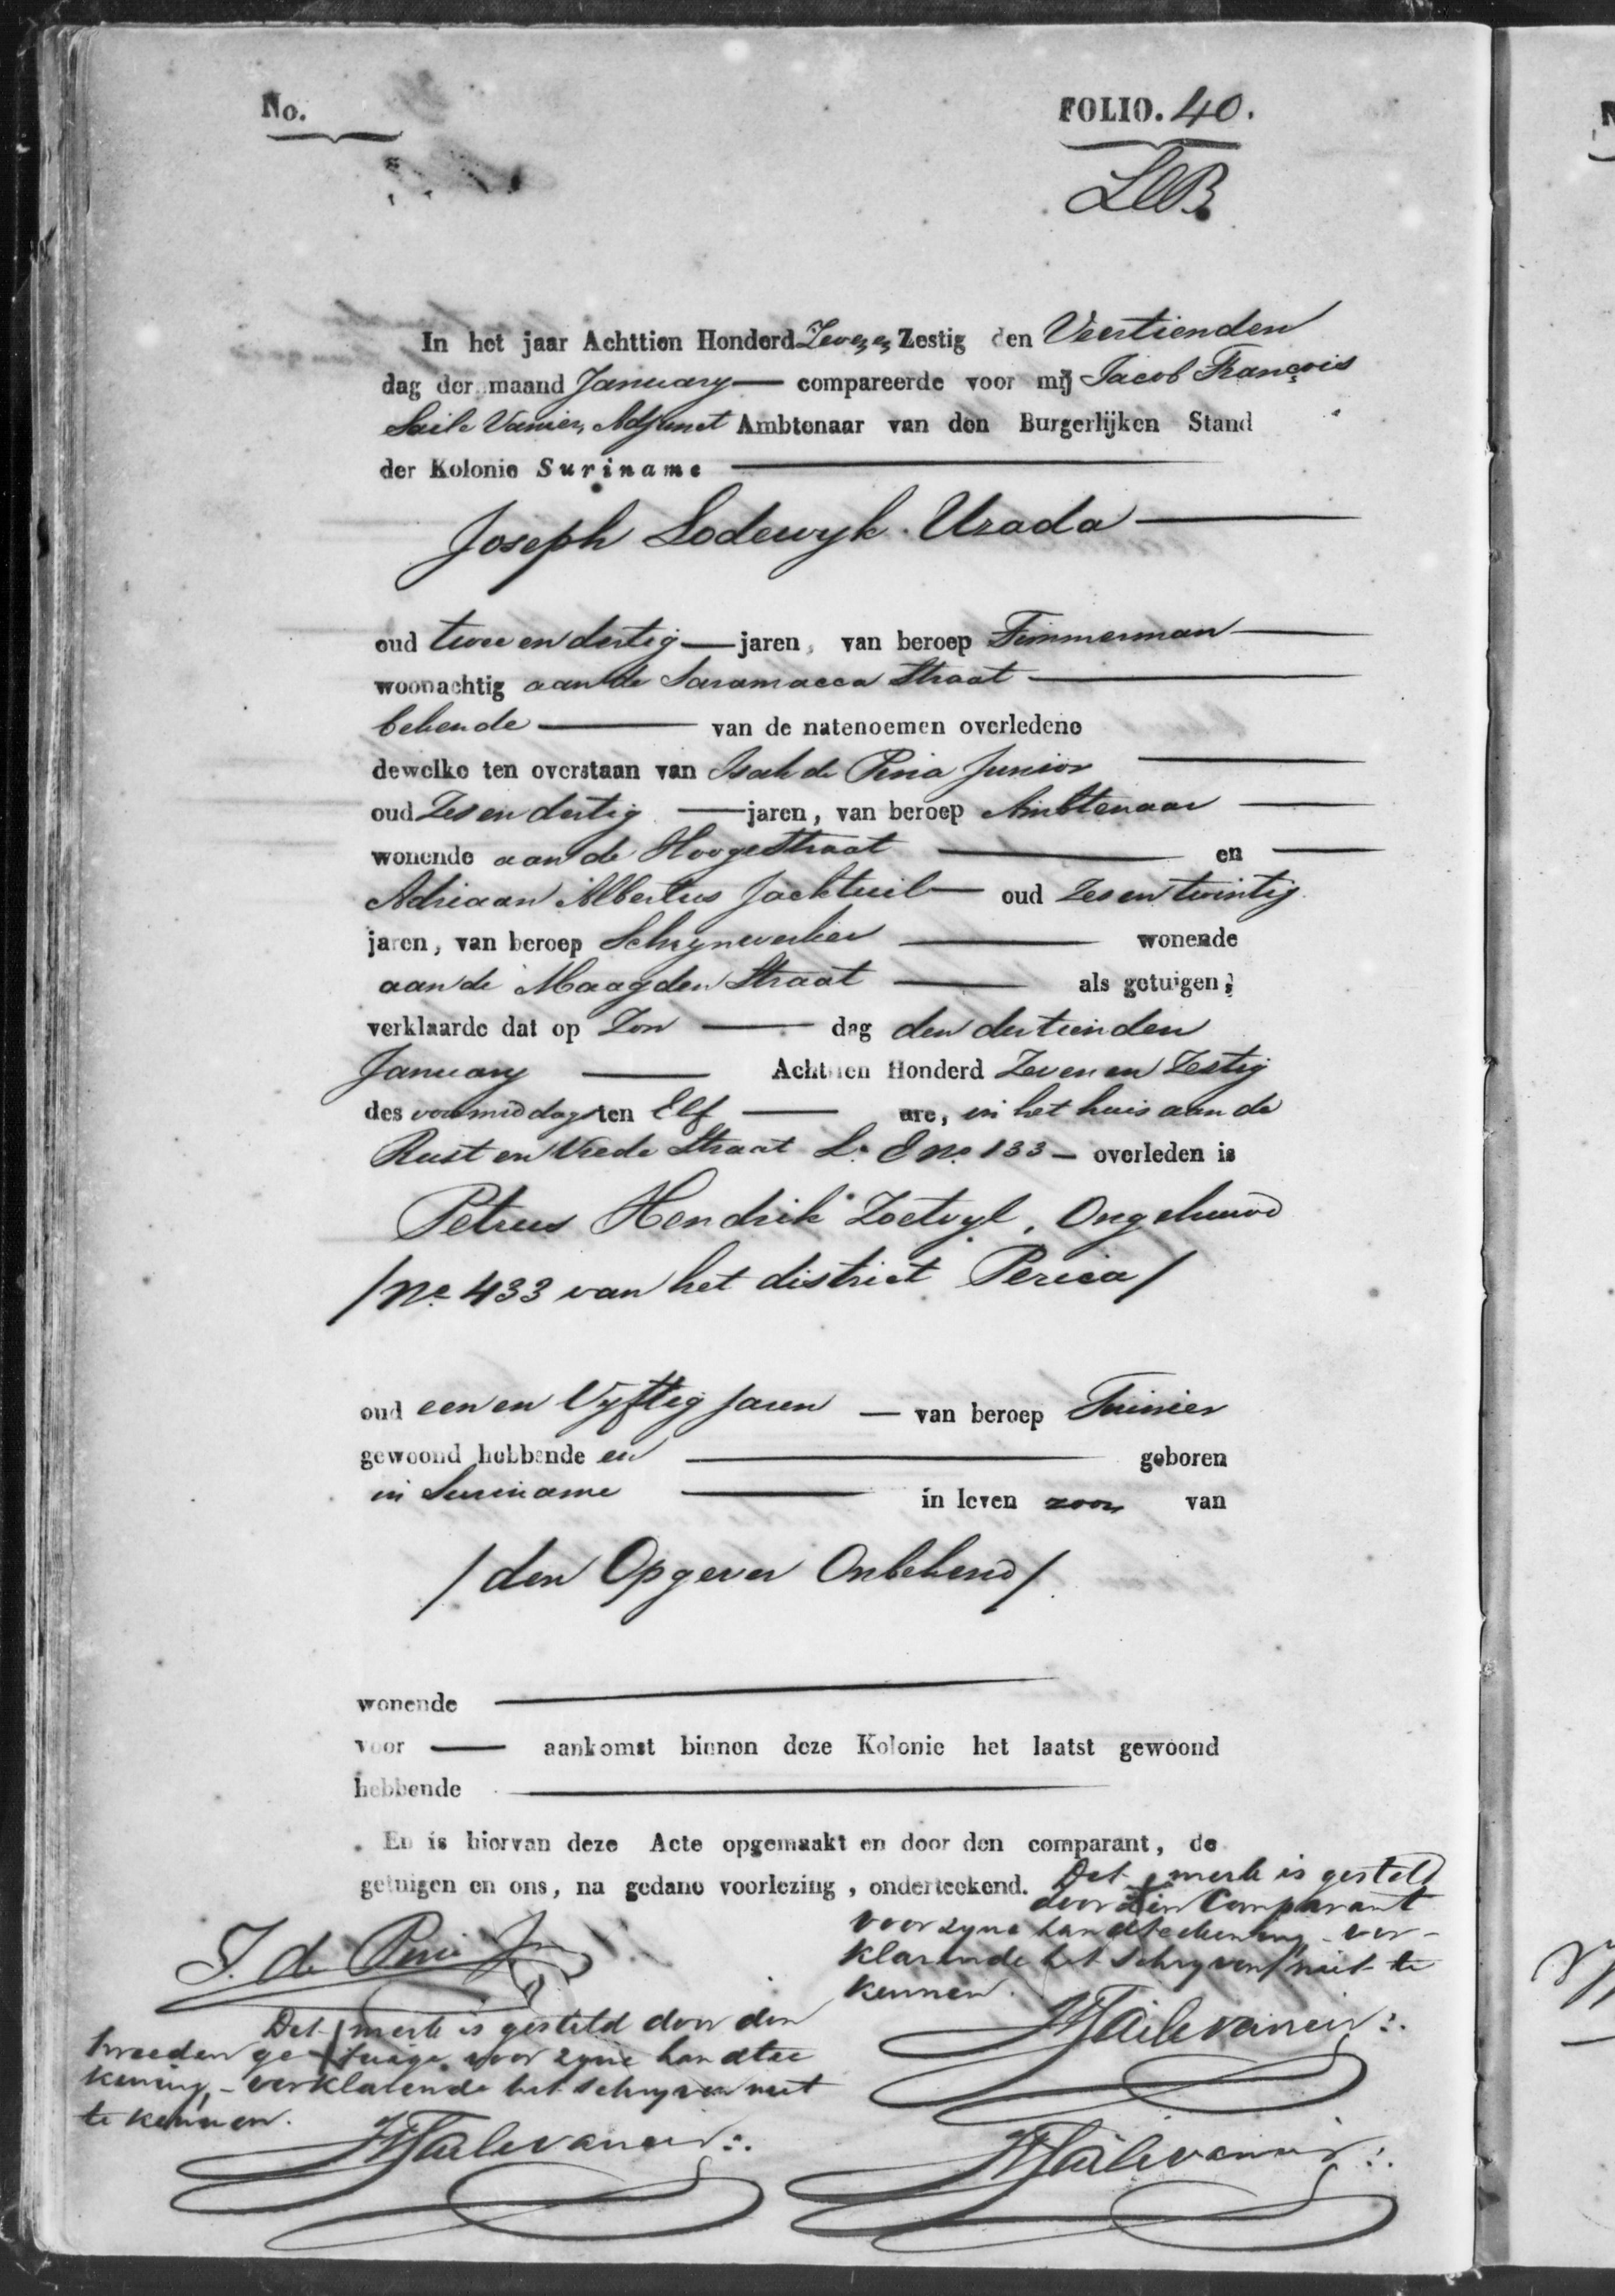 No.
FOLIO. 40.
In het jaar Achttien Honderd Zeven en Zestig den Veertienden
dag der maand January — compareerde voor mij Jacob François
Saile Vanier, Adjunct Ambtenaar van den Burgerlijken Stand
der Kolonie Suriname
Joseph Lodewyk Urada
oud twee en dertig — jaren, van beroep Timmerman
woonachtig aan de Saramacca Straat
bekende — van de natenoemen overledene
dewelke ten overstaan van Isak de Pina Junior
oud Zes en dertig — jaren, van beroep Ambtenaar
wonende aan de Hoogestraat — en
Adriaan Albertus Jacktuil — oud Zes en twintig
jaren, van beroep Schrynwerker — wonende
aan de Maagden Straat — als getuigen;
verklaarde dat op Zon — dag den dertienden
January — Achttien Honderd Zeven en Zestig
des voormiddags ten Elf — ure, in het huis aan de
Rust en Vrede Straat L. E No. 133 — overleden is
Petrus Hendrik Zoetvyl, Ongehuwd
/No. 433 van het district Perica/
oud een en Vyftig jaren — van beroep Tuinier
gewoond hebbende en — geboren
in Suriname — in leven zoon van
/den Opgever Onbekend/
wonende
voor — aankomst binnen deze Kolonie het laatst gewoond
hebbende
En is hiervan deze Acte opgemaakt en door den comparant, de
getuigen en ons, na gedane voorlezing, onderteekend.
Dit merk is gesteld
door den Comparant
voor zyne handteekening, ver-
klarende het schryven niet te
kennen.
I. de Pina Jr
JFSailevanier
Dit merk is gesteld door den
tweeden getuige voor zyne handtee
kening, – verklarende het schryven niet
te kennen.
JFSailevanier
JFSailevanier